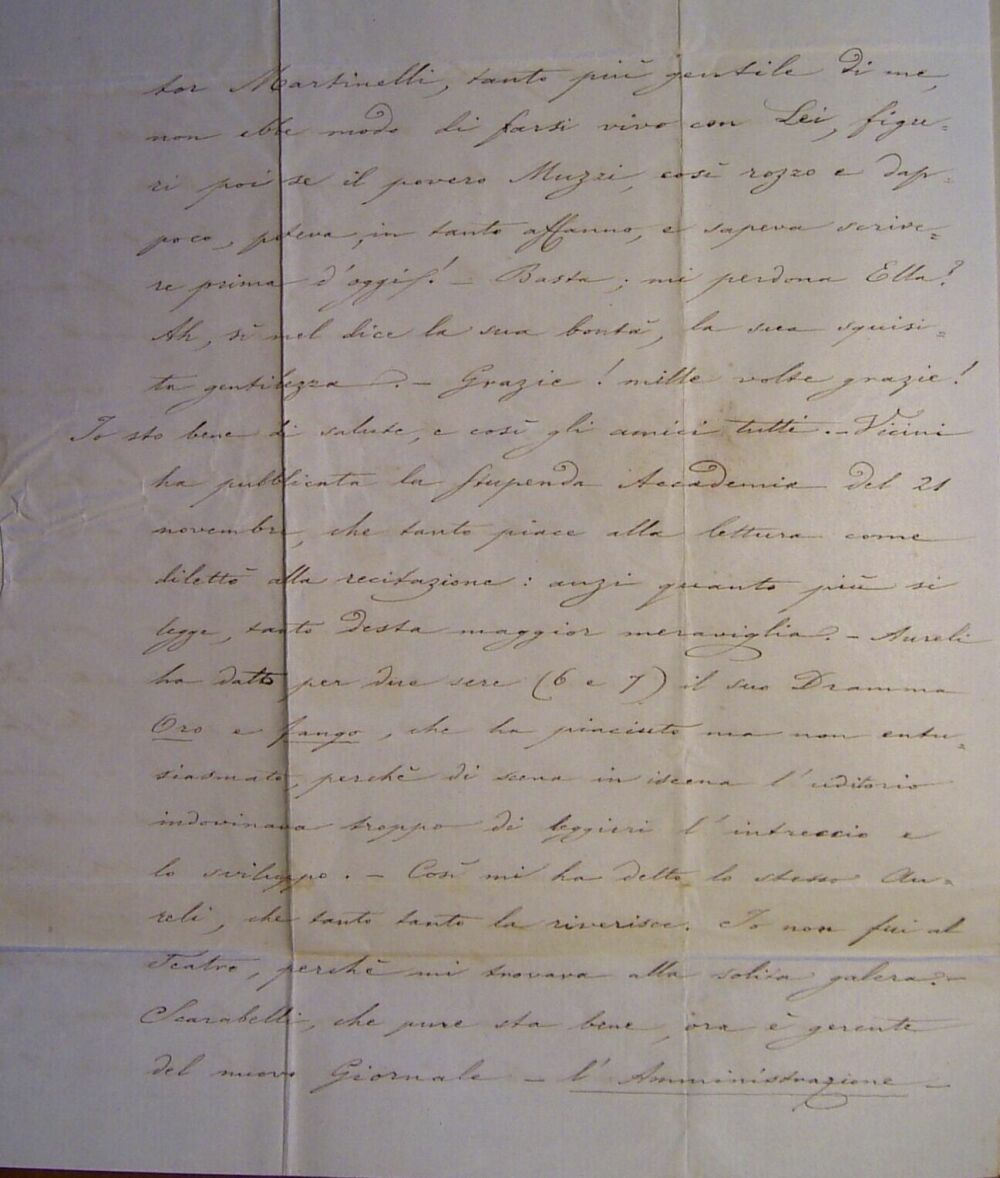 tor Martinelli, tanto più gentile di me,
non ebbe modo di farsi vivo con Lei, figu=
ri poi se il povero Muzzi, così rozzo e dap=
poco, poteva, in tanto affanno, e sapeva scrive=
re prima d'oggi! – Basta; mi perdona Ella?
Ah, sì mel dice la sua bontà, la sua squisi=
ta gentilezza. – Grazie! mille volte grazie!
Io sto bene di salute, e così gli amici tutti. – Vicini
ha pubblicata la stupenda Accademia del 21
novembre, che tanto piace alla lettura come
dilettò alla recitazione: anzi quanto più si
legge, tanto desta maggior meraviglia. – Aureli
ha dato per due sere (6 e 7) il suo Dramma
Oro e fango, che ha piaciuto ma non entu=
siasmato, perchè di scena in iscena l'uditorio
indovinava troppo di leggieri l'intreccio e
lo sviluppo. – Così mi ha detto lo stesso Au=
reli, che tanto tanto la riverisce. Io non fui al
Teatro, perchè mi trovava alla solita galera. –
Scarabelli, che pure sta bene, ora è gerente
del nuovo Giornale – l'Amministrazione –